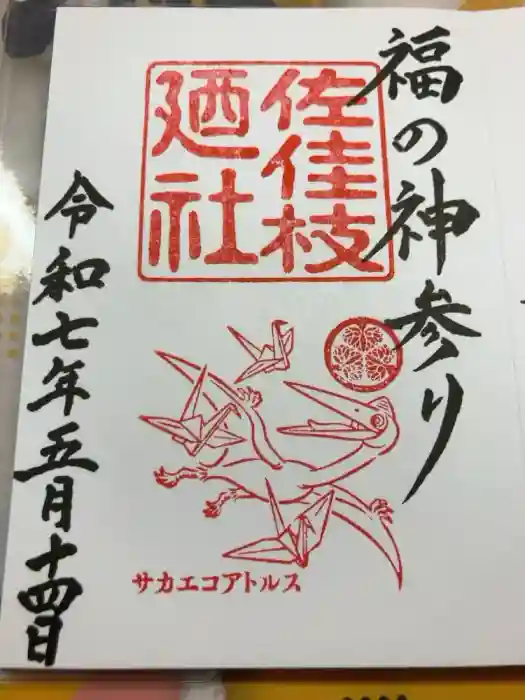 福の神参り
佐佳枝
廼社
サカエコアトルス
令和七年五月十四日